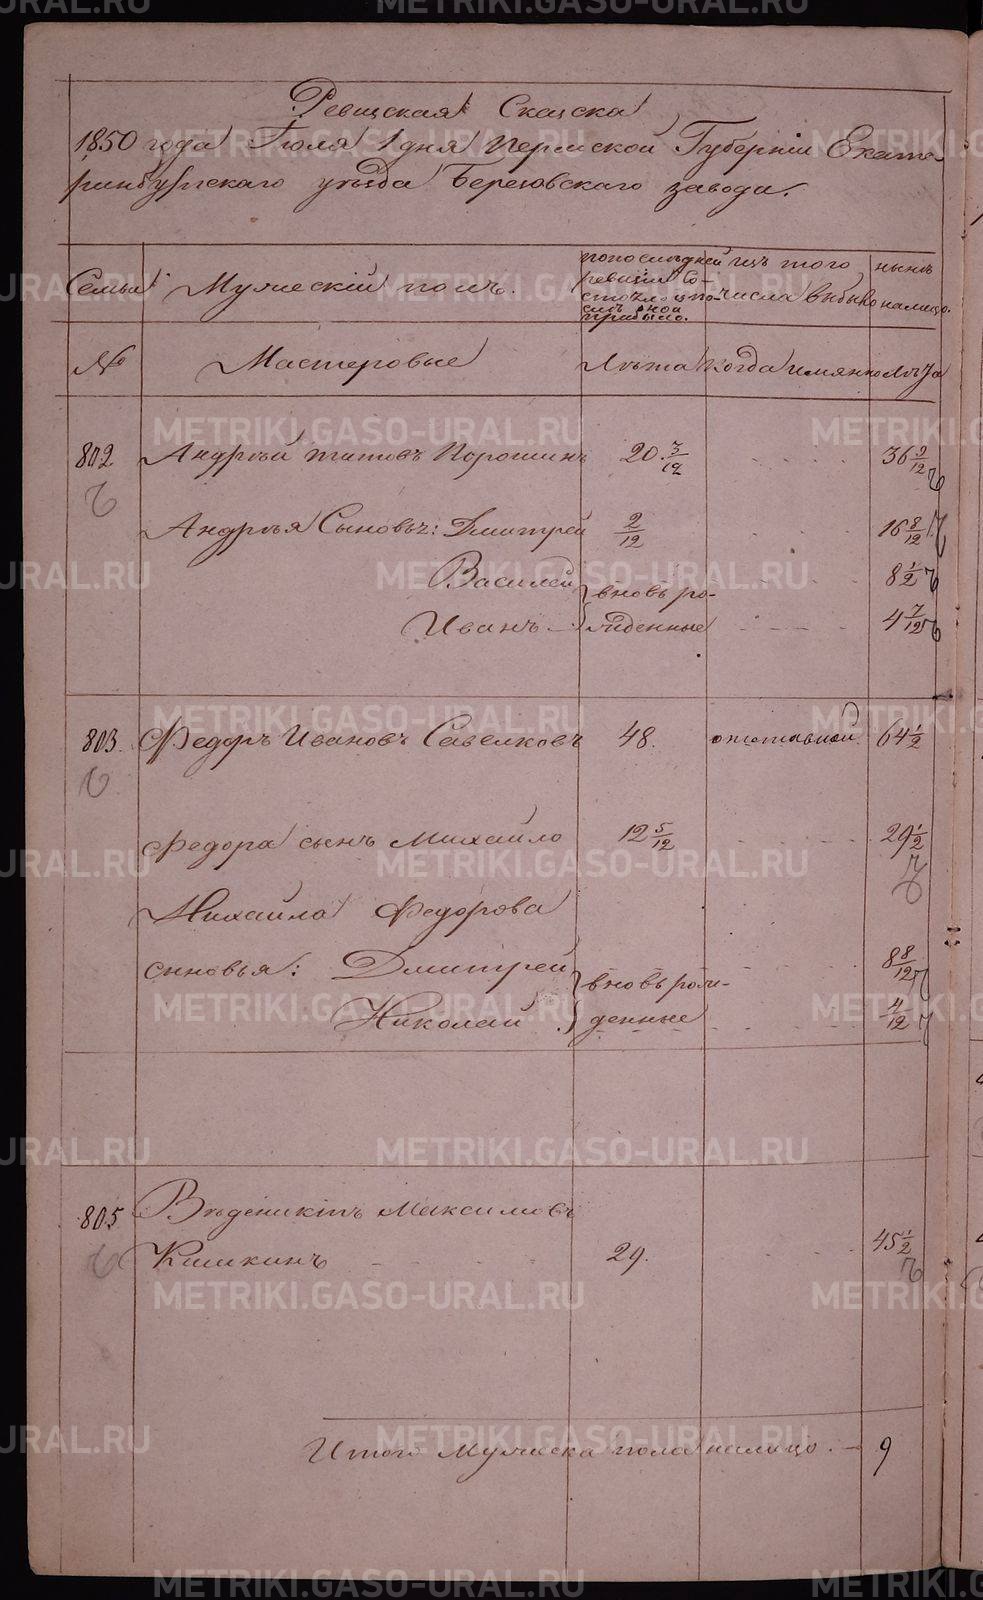 Ревижская Скаска
1850 года Іюля 1 дня Пермской Губерніи Екате-
ринбургскаго уѣзда Березовскаго завода.
Семьи Мужескій полъ. попослѣдней ревизіи со- стояло и по- слѣ оной прибыло. изъ того числа выбыло нынѣ налицо.
№ Мастеровые Лѣта когда имянно Лѣта
802 Андрѣй Титовъ Порошинъ 20 3/12 36 9/12
Андрѣя Сыновья: Дмитрей 2/12 16 8/12
Василей вновь ро- 8 1/2
Иванъ жденные 4 7/12
803. Федоръ Ивановъ Савелковъ 48. отставной 64 1/2
Федора сынъ Михайло 12 5/12 29 1/2
Михайла Федорова
сыновья: Дмитрей вновь рож- 8 8/12
Николай денные 4/12
805 Вѣденихтъ Максимовъ
Кишкинъ 29. 45 1/2
Итого Мужеска пола налицо. 9
METRIKI.GASO-URAL.RU